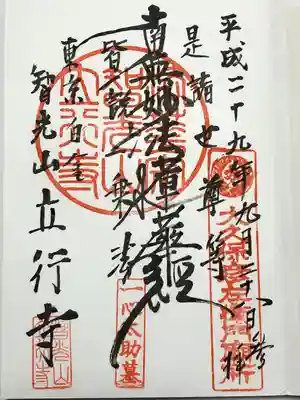 平成二十九年九月二十八日参拝
是諸世尊等
南無妙法蓮華経
皆説一乗法
東京白金
智光山立行寺
一心太助墓